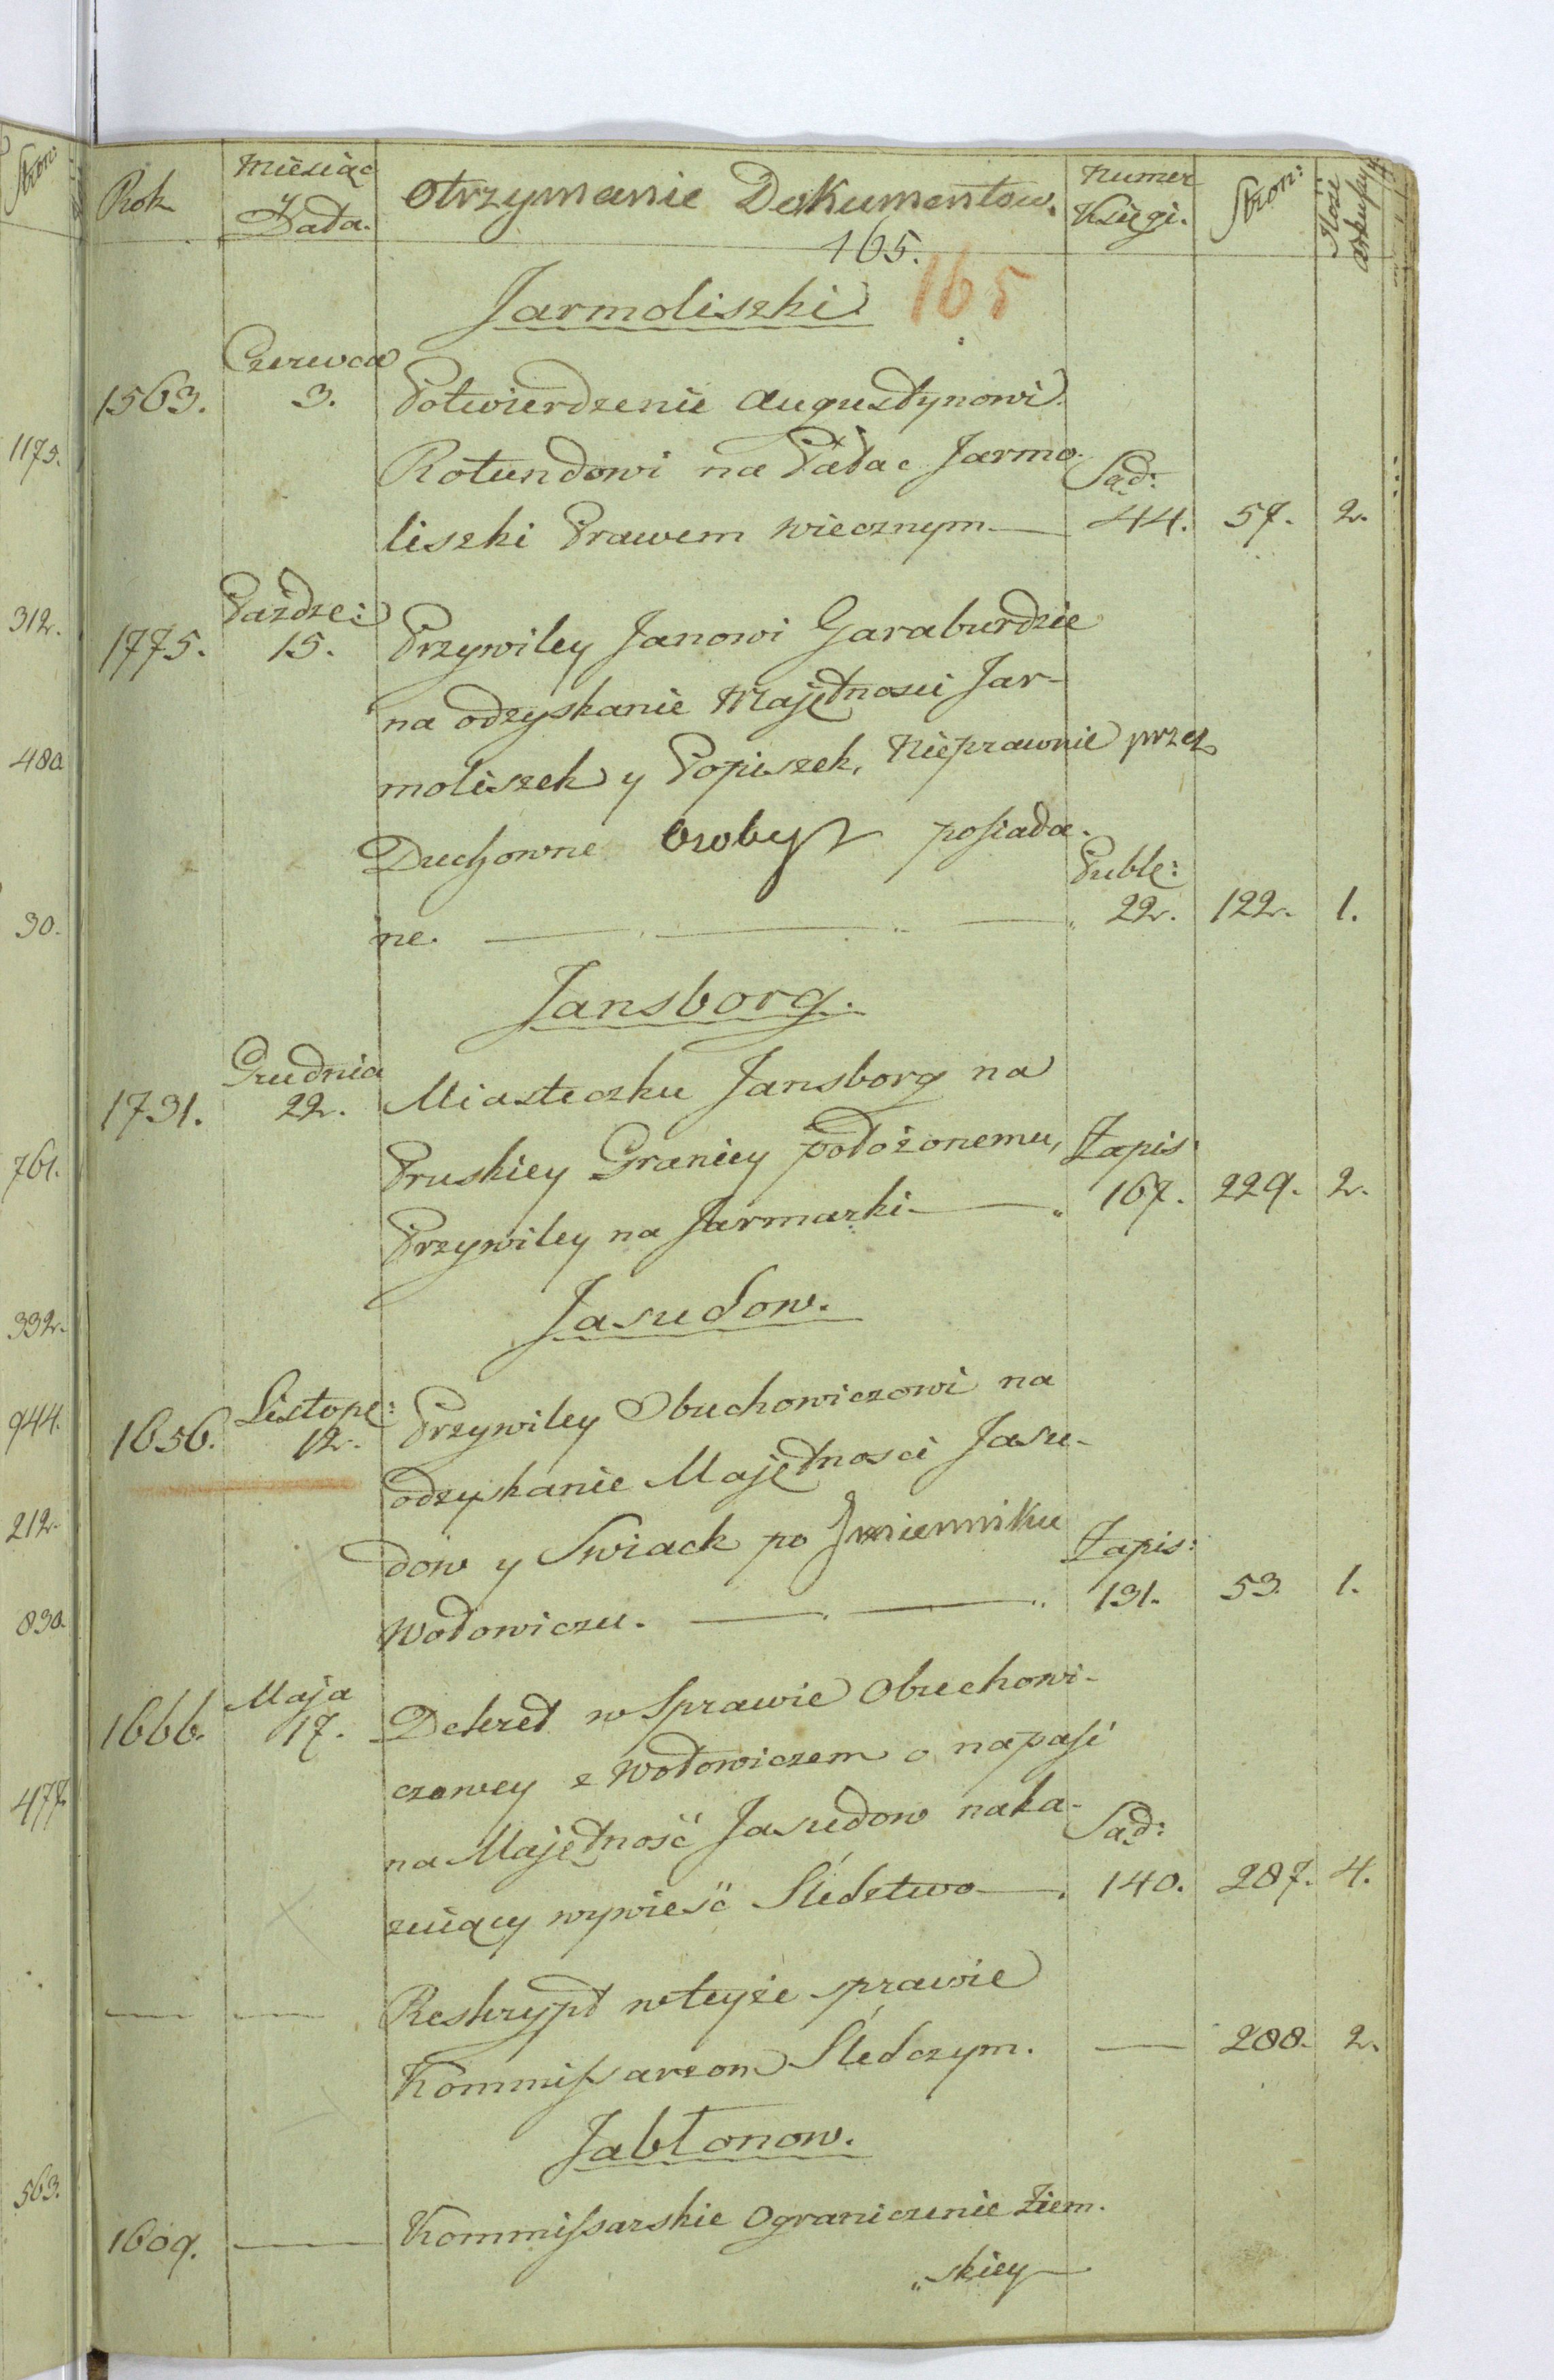 Stron:
1175.
312.
480
30.
761.
332.
944.
212.
830.
477.
563.
Rok
Miesiąc
y
Data.
Otrzymanie Dokumentow.
Numer
Księgi.
Stron:
Ilość
arkuszy
165.
165
Jarmoliszki
1563.
Czerwca
3.
Potwierdzenie Augustynowi
Rotundowi na Pałac Jarmo-
liszki Prawem wiecznym —
Sąd:
44.
57.
2.
1775.
Paździe:
15.
Przywiley Janowi Garaburdzie
na odzyskanie Majętnosci Jar-
moliszek y Popiszek, Nieprawnie przez
Duchowne Osoby posiada-
ne.
Publ:
22.
122.
1.
Jansborg.
1731.
Grudnia
22.
Miasteczku Jansborg na
Pruskiey Granicy położonemu,
Przywiley na Jarmarki —
Zapis:
167.
229.
2.
Jasudow.
1656.
Listop:
12.
Przywiley Obuchowiczowi na
odzyskanie Majętnosci Jasu-
dow y Swiack po Jmienniku
Wołowiczu.
Zapis:
131.
53.
1.
1666.
Maja
17.
Dekret w Sprawie Obuchowi-
czowey z Wołowiczem o napaść
na Majętność Jasudow naka-
zuiący wywieść Śledztwo —
Sąd:
140.
287.
4.
— —
Reskrypt w teyże sprawie
Kommissarzom Śledczym.
—
288.
2.
Jabłonow.
1609.
—
Kommissarskie Ograniczenie Ziem-
„skiey